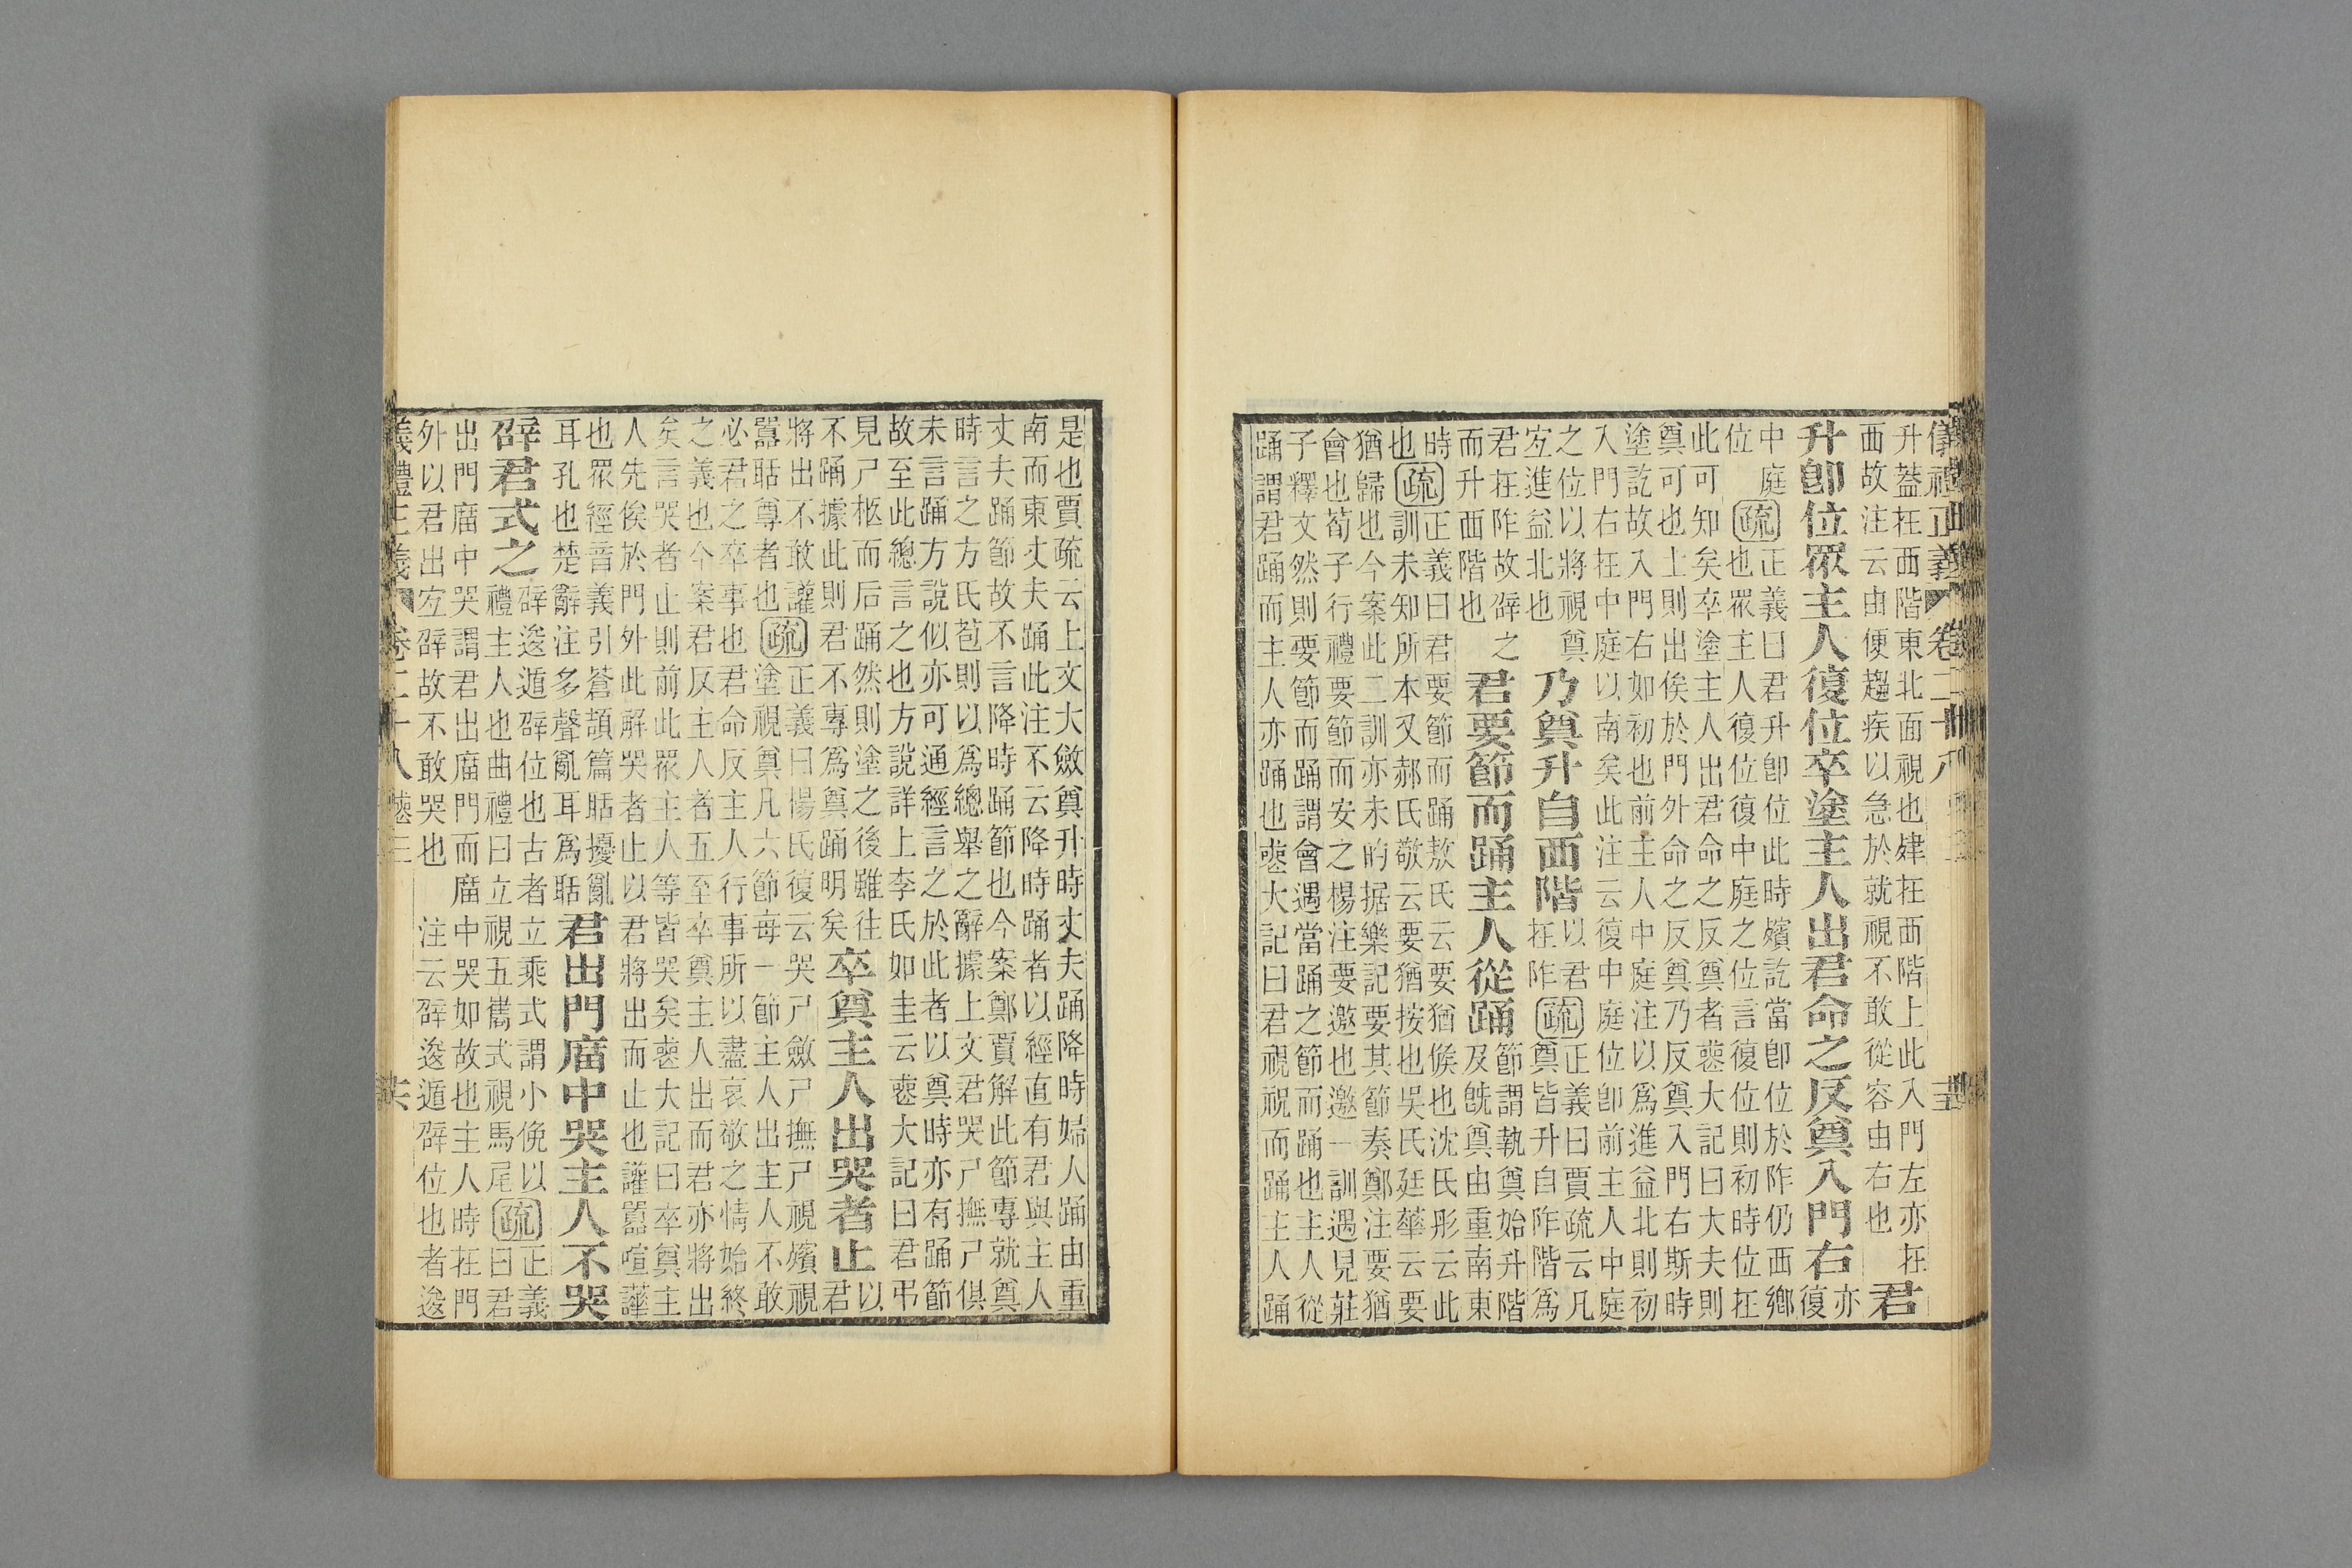 儀禮正義 卷二十八
升蓋在西階東北面視也肂在西階上此入門左亦在
西故注云由便趨疾以急於就視不敢從容由右也
君
升卽位眾主人復位卒塗主人出君命之反奠入門右
亦
復
中庭
位
疏
正義曰君升卽位此時殯訖當卽位於阼仍西鄉
也眾主人復位復中庭之位言復位則初時位在
此可知矣卒塗主人出君命之反奠者喪大記曰大夫則
奠可也士則出俟於門外命之反奠乃反奠入門右斯時
塗訖故入門右如初也前主人中庭注以爲進益北則初
入門右在中庭以南矣此注云復中庭位卽前主人中庭
之位以將視奠
左進益北也
乃奠升自西階
以君
在阼
疏
正義曰賈疏云凡
奠皆升自阼階爲
君在阼故辟之
而升西階也
君要節而踊主人從踊
節謂執奠始升階
及旣奠由重南東
時
也
疏
正義曰君要節而踊敖氏云要猶候也沈氏彤云此
訓未知所本又郝氏敬云要猶按也吳氏廷華云要
猶歸也今案此二訓亦未的据樂記要其節奏鄭注要猶
會也荀子行禮要節而安之楊注要邀也邀一訓遇見莊
子釋文然則要節而踊謂會遇當踊之節而踊也主人從
踊謂君踊而主人亦踊也喪大記曰君視祝而踊主人踊
是也賈疏云上文大斂奠升時丈夫踊降時婦人踊由重
南而東丈夫踊此注不云降時踊者以經直有君與主人
丈夫踊節故不言降時踊節也今案鄭賈解此節專就奠
時言之方氏苞則以爲總舉之辭據上文君哭尸撫尸俱
未言踊方說似亦可通經言之於此者以奠時亦有踊節
故至此總言之也方說詳上李氏如圭云喪大記曰君弔
見尸柩而后踊然則塗之後雖往
不踊據此則君不專爲奠踊明矣
卒奠主人出哭者止
以
君
將出不敢讙
囂聒尊者也
疏
正義曰楊氏復云哭尸斂尸撫尸視殯視
塗視奠凡六節每一節主人出主人不敢
必君之卒事也君命反主人行事所以盡哀敬之情始終
之義也今案君反主人者五至卒奠主人出而君亦將出
矣言哭者止則前此眾主人等皆哭矣喪大記曰卒奠主
人先俟於門外此解哭者止以君將出而止也讙囂喧譁
也眾經音義引蒼頡篇聒擾亂
耳孔也楚辭注多聲亂耳爲聒
君出門廟中哭主人不哭
辟君式之
辟逡遁辟位也古者立乘式謂小俛以
禮主人也曲禮曰立視五巂式視馬尾
疏
正義
曰君
出門廟中哭謂君出廟門而廟中哭如故也主人時在門
外以君出左辟故不敢哭也 注云辟逡遁辟位也者逡
儀禮正義 卷二十八 喪三